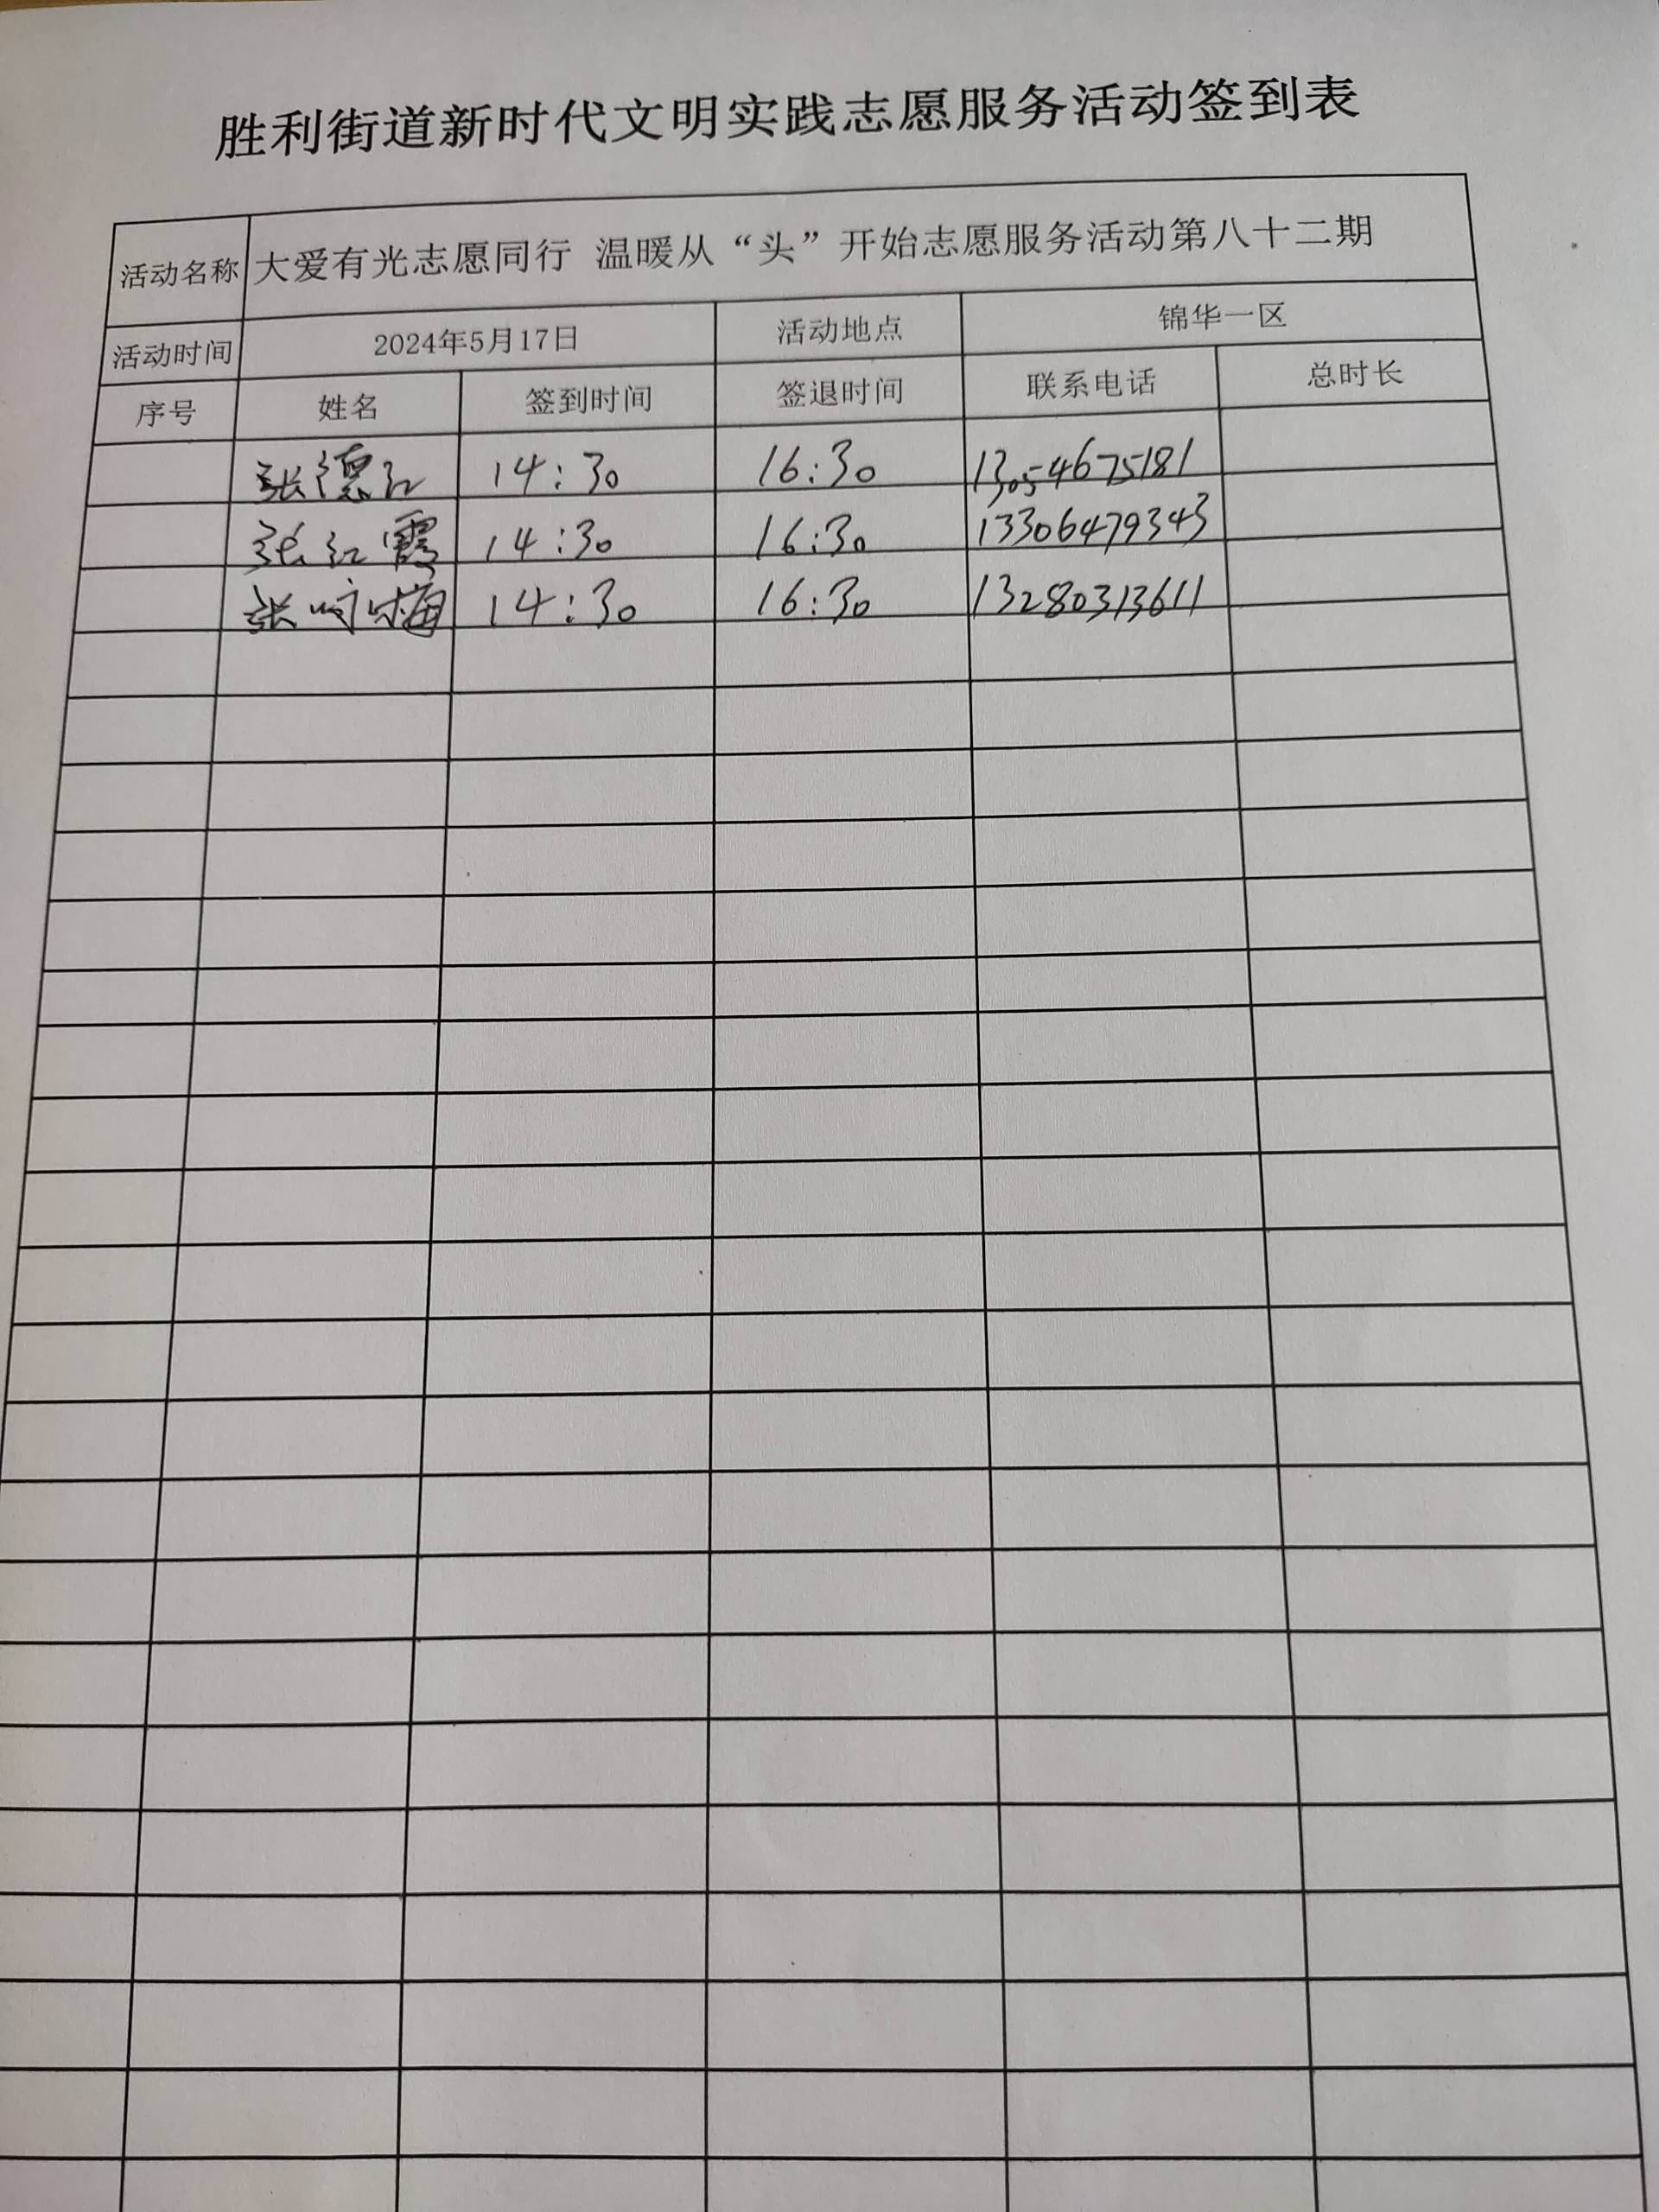 胜利街道新时代文明实践志愿服务活动签到表
活动名称 大爱有光志愿同行 温暖从“头”开始志愿服务活动第八十二期
活动时间 2024年5月17日 活动地点 锦华一区
序号 姓名 签到时间 签退时间 联系电话 总时长
张德江 14:30 16:30 13054675181
张红霞 14:30 16:30 13306479343
张 梅 14:30 16:30 13280313611